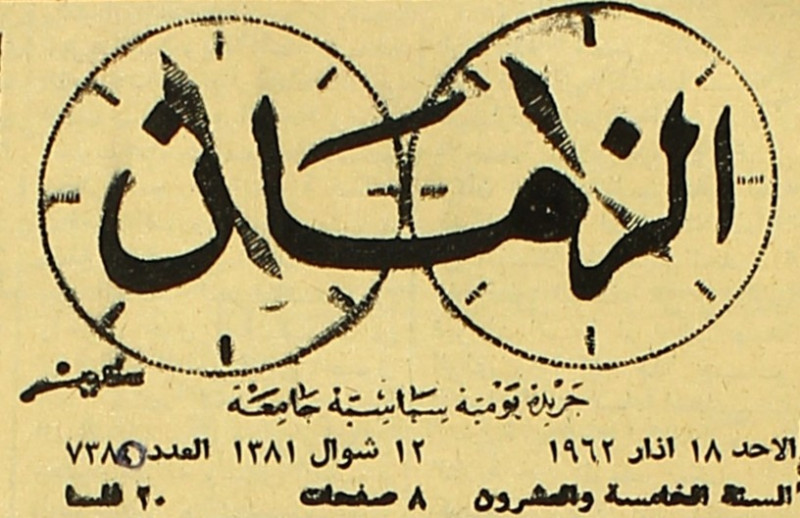 الزمان
جريدة يومية سياسية جامعة
الاحد ١٨ اذار ١٩٦٢ ١٢ شوال ١٣٨١ العدد ٧٣٨
السنة الخامسة والعشرون ٨ صفحات ٢٠ فلسا